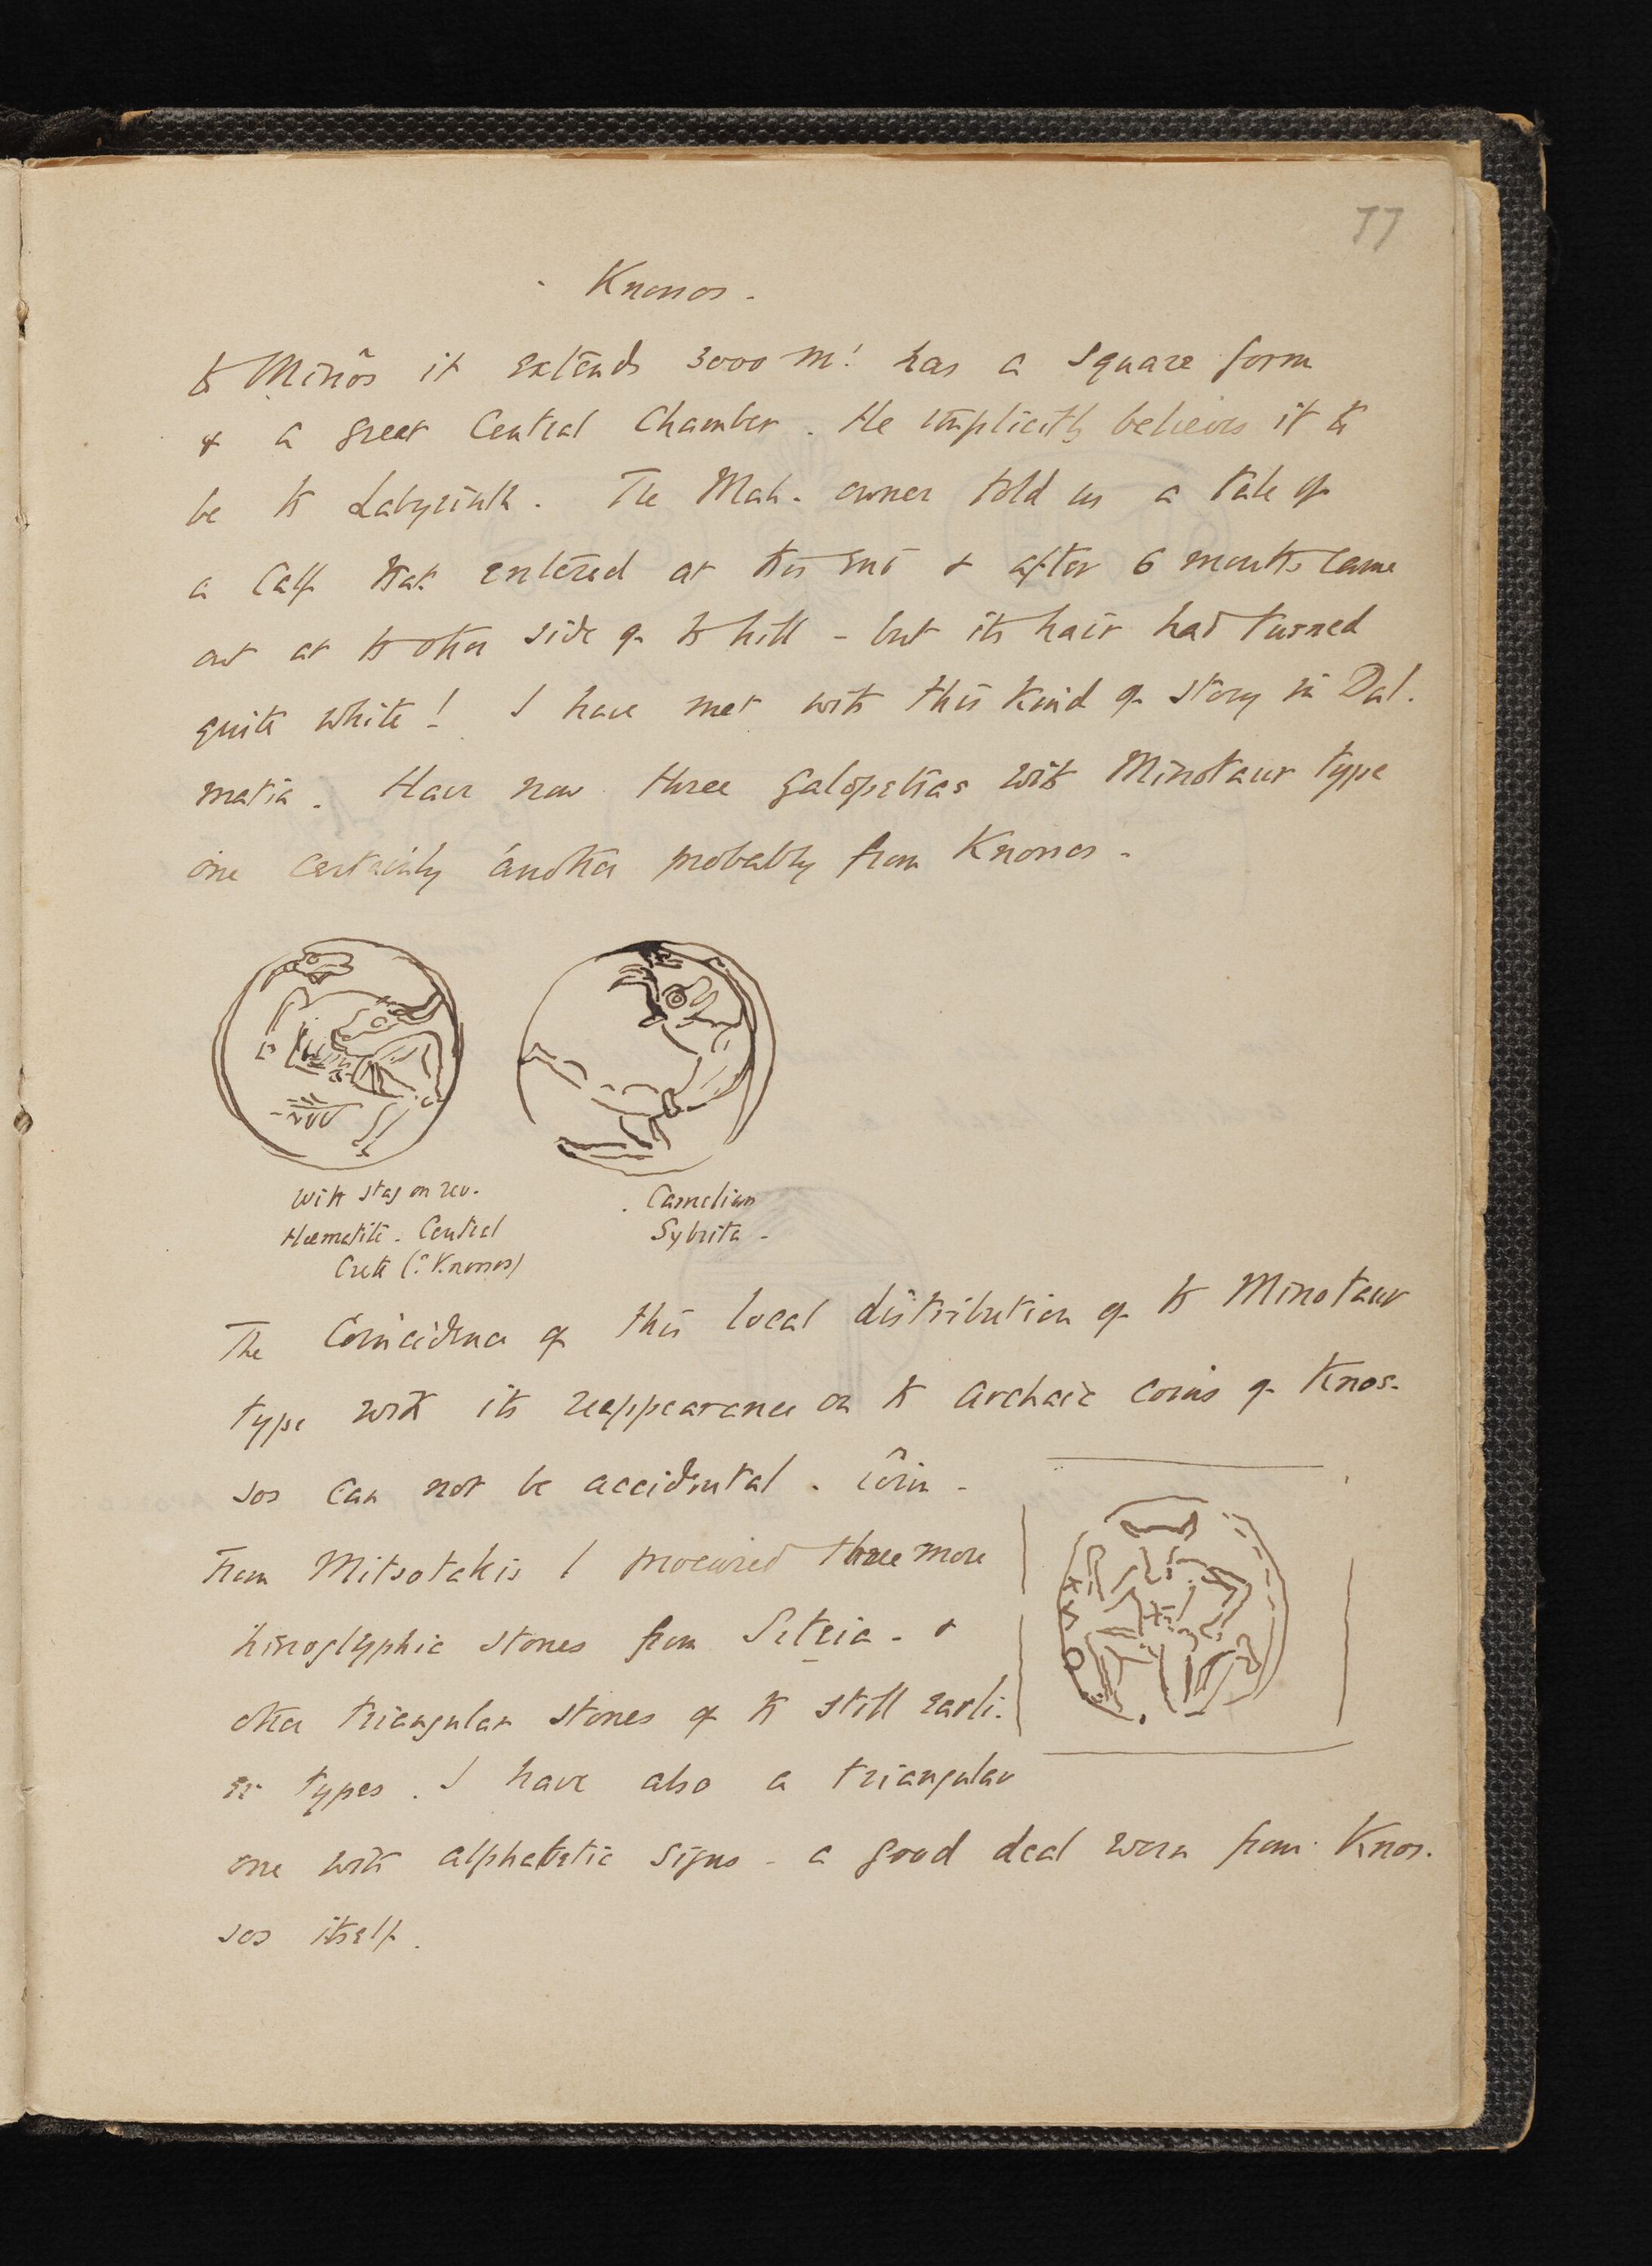 77
Knossos.
to Minôs it extends 3000 m! has a square form
& a great Central Chamber. He implicitly believes it to
be the Labyrinth. The Mah. owner told us a tale of
a calf that entered at this end & after 6 months came
out at the other side of the hill - but its hair had turned
quite white! I have met with this kind of story in Dal-
matia. Have now three galopetras with Minotaur type
one certainly another probably from Knossos.
With stag on rev.
Haematite. Central
Crete (? Knossos)
Carnelian
Sybrita.
The Coincidence of this local distribution of the Minotaur
type with its reappearance on the archaic coins of Knos-
sos can not be accidental.
From Mitsotakis I procured three more
hieroglyphic stones from Siteia - &
other triangular stones of the still earli-
er types. I have also a triangular
one with alphabetic signs - a good deal worn from Knos-
sos itself.